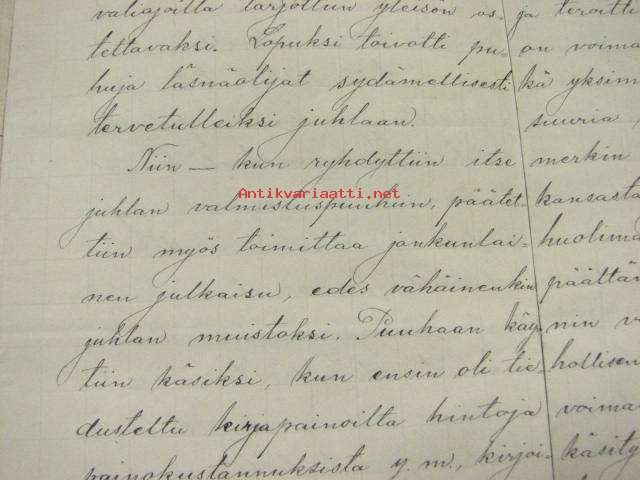 väliajoilla tarjottun yleisön os-
tettavaksi. Lopuksi toivotti pu-
huja läsnäolijat sydämellisesti
tervetulleiksi juhlaan.
Niin — kun ryhdyttiin itse
juhlan valmistuspuuhiin, päätet-
tiin myös toimittaa jonkunlai-
nen julkaisu, edes vähäinenkin
juhlan muistoksi. Puuhaan käy-
tiin käsiksi, kun ensin oli tie-
dusteltu kirjapainoilta hintoja
painokustannuksista y. m., kirjoi-
ja
on voima
kä yksim
suuria
merkin
kansasta
huolima
päältä
nin v
hollisen
voima
käsity
Antikvariaatti.net